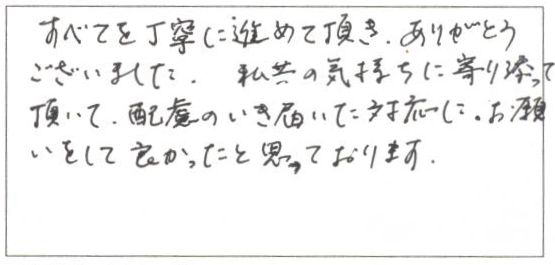 すべてを丁寧に進めて頂き、ありがとう
ございました。 私共の気持ちに寄り添って
頂いて、配慮のいき届いた対応に。お願
いをして良かったと思っております。